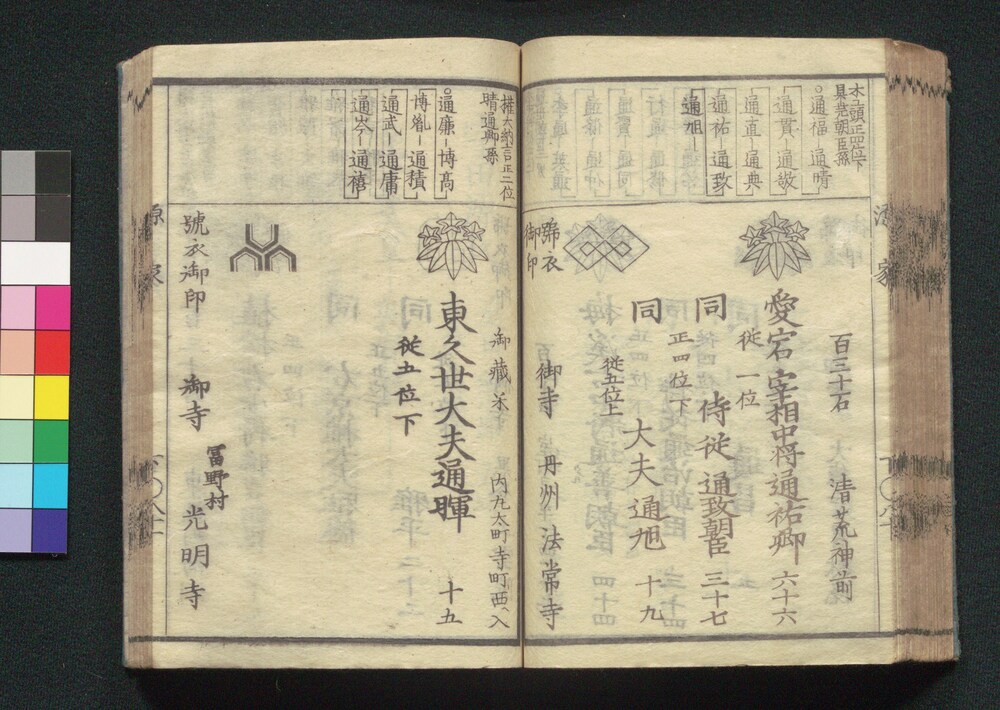 木工頭正四位下
具堯朝臣孫
○通福-通晴
通貫-通敬
通直-通典
通祐-通致
通旭
百三十石
清荒神前
愛宕宰相中将通祐卿
六十六
従一位
同
侍従通致朝臣
三十七
正四位下
同
大夫通旭
十九
従五位上
御印
御寺
丹州
法常寺
源家
権大納言正二位
晴通卿孫
○通廉-博高
通積
通武-通庸
通岑-通禧
御蔵米
内丸太町寺町西へ入
東久世大夫通暉
十五
従五位下
號衣御印
御寺
冨野村
光明寺
源家